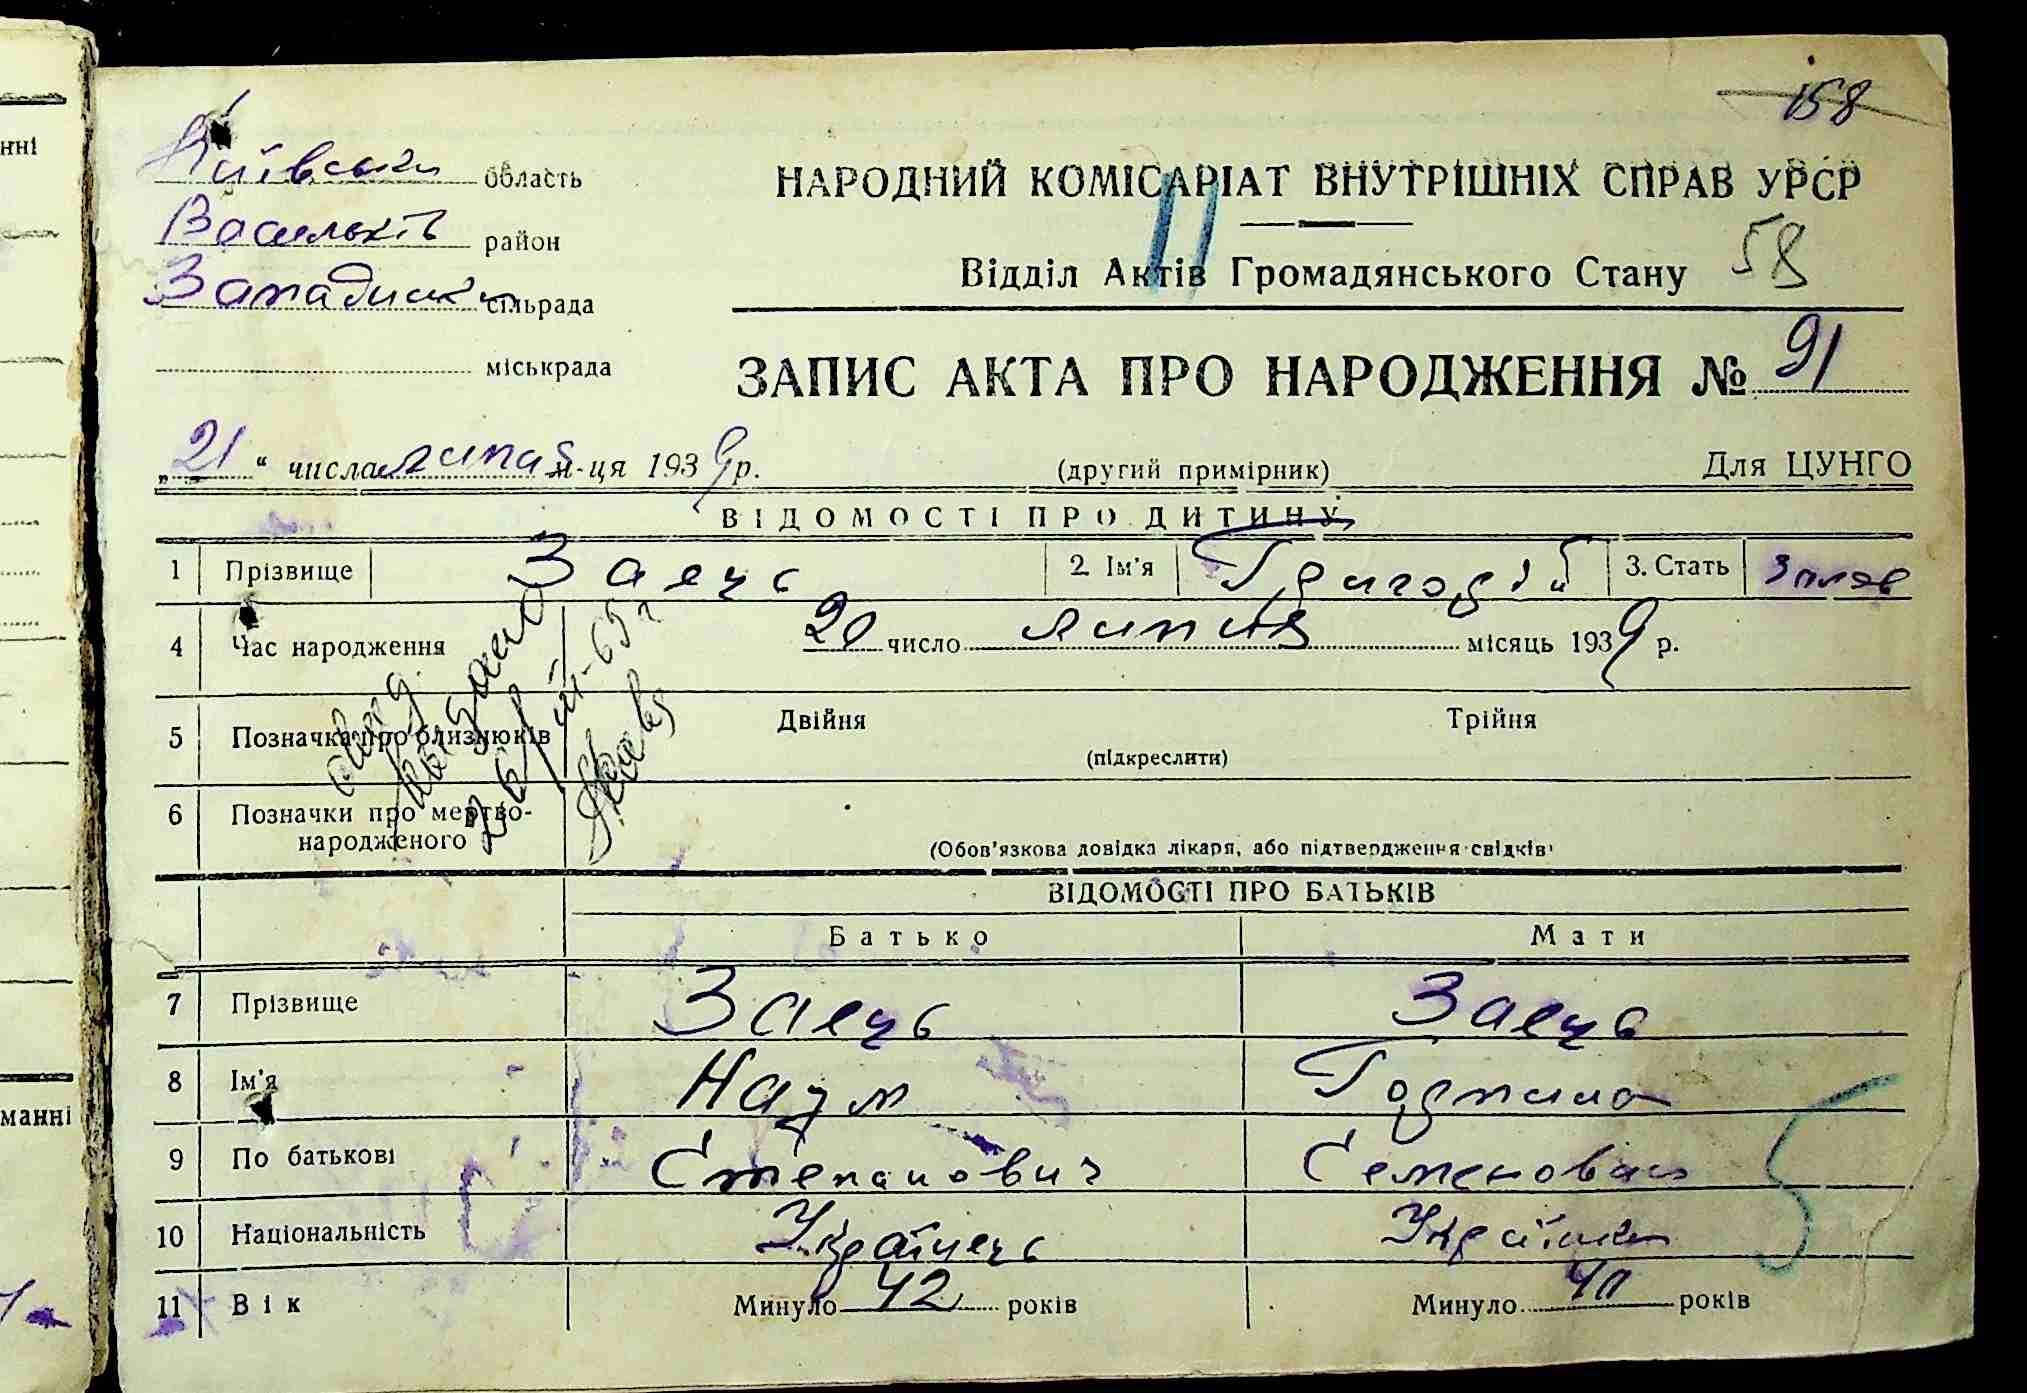 158
Київська область
НАРОДНИЙ КОМІСАРІАТ ВНУТРІШНІХ СПРАВ УРСР
Васильків район
Відділ Актів Громадянського Стану 58
сільрада
міськрада
ЗАПИС АКТА ПРО НАРОДЖЕННЯ № 91
„21“ числа липня м-ця 1939 р. (другий примірник) Для ЦУНГО
ВІДОМОСТІ ПРО ДИТИНУ
1 Прізвище Заець 2. Ім'я Григорій 3. Стать
4 Час народження 20 число липня місяць 1939 р.
5 Позначка про близнюків Двійня Трійня
(підкреслити)
6 Позначки про мертво-
народженого
(Обов'язкова довідка лікаря, або підтвердження свідків)
ВІДОМОСТІ ПРО БАТЬКІВ
Батько Мати
7 Прізвище Заець Заець
8 Ім'я Наум
9 По батькові Степанович Семеновна
10 Національність Українець Українка
11 Вік Минуло 42 років Минуло 40 років
манні